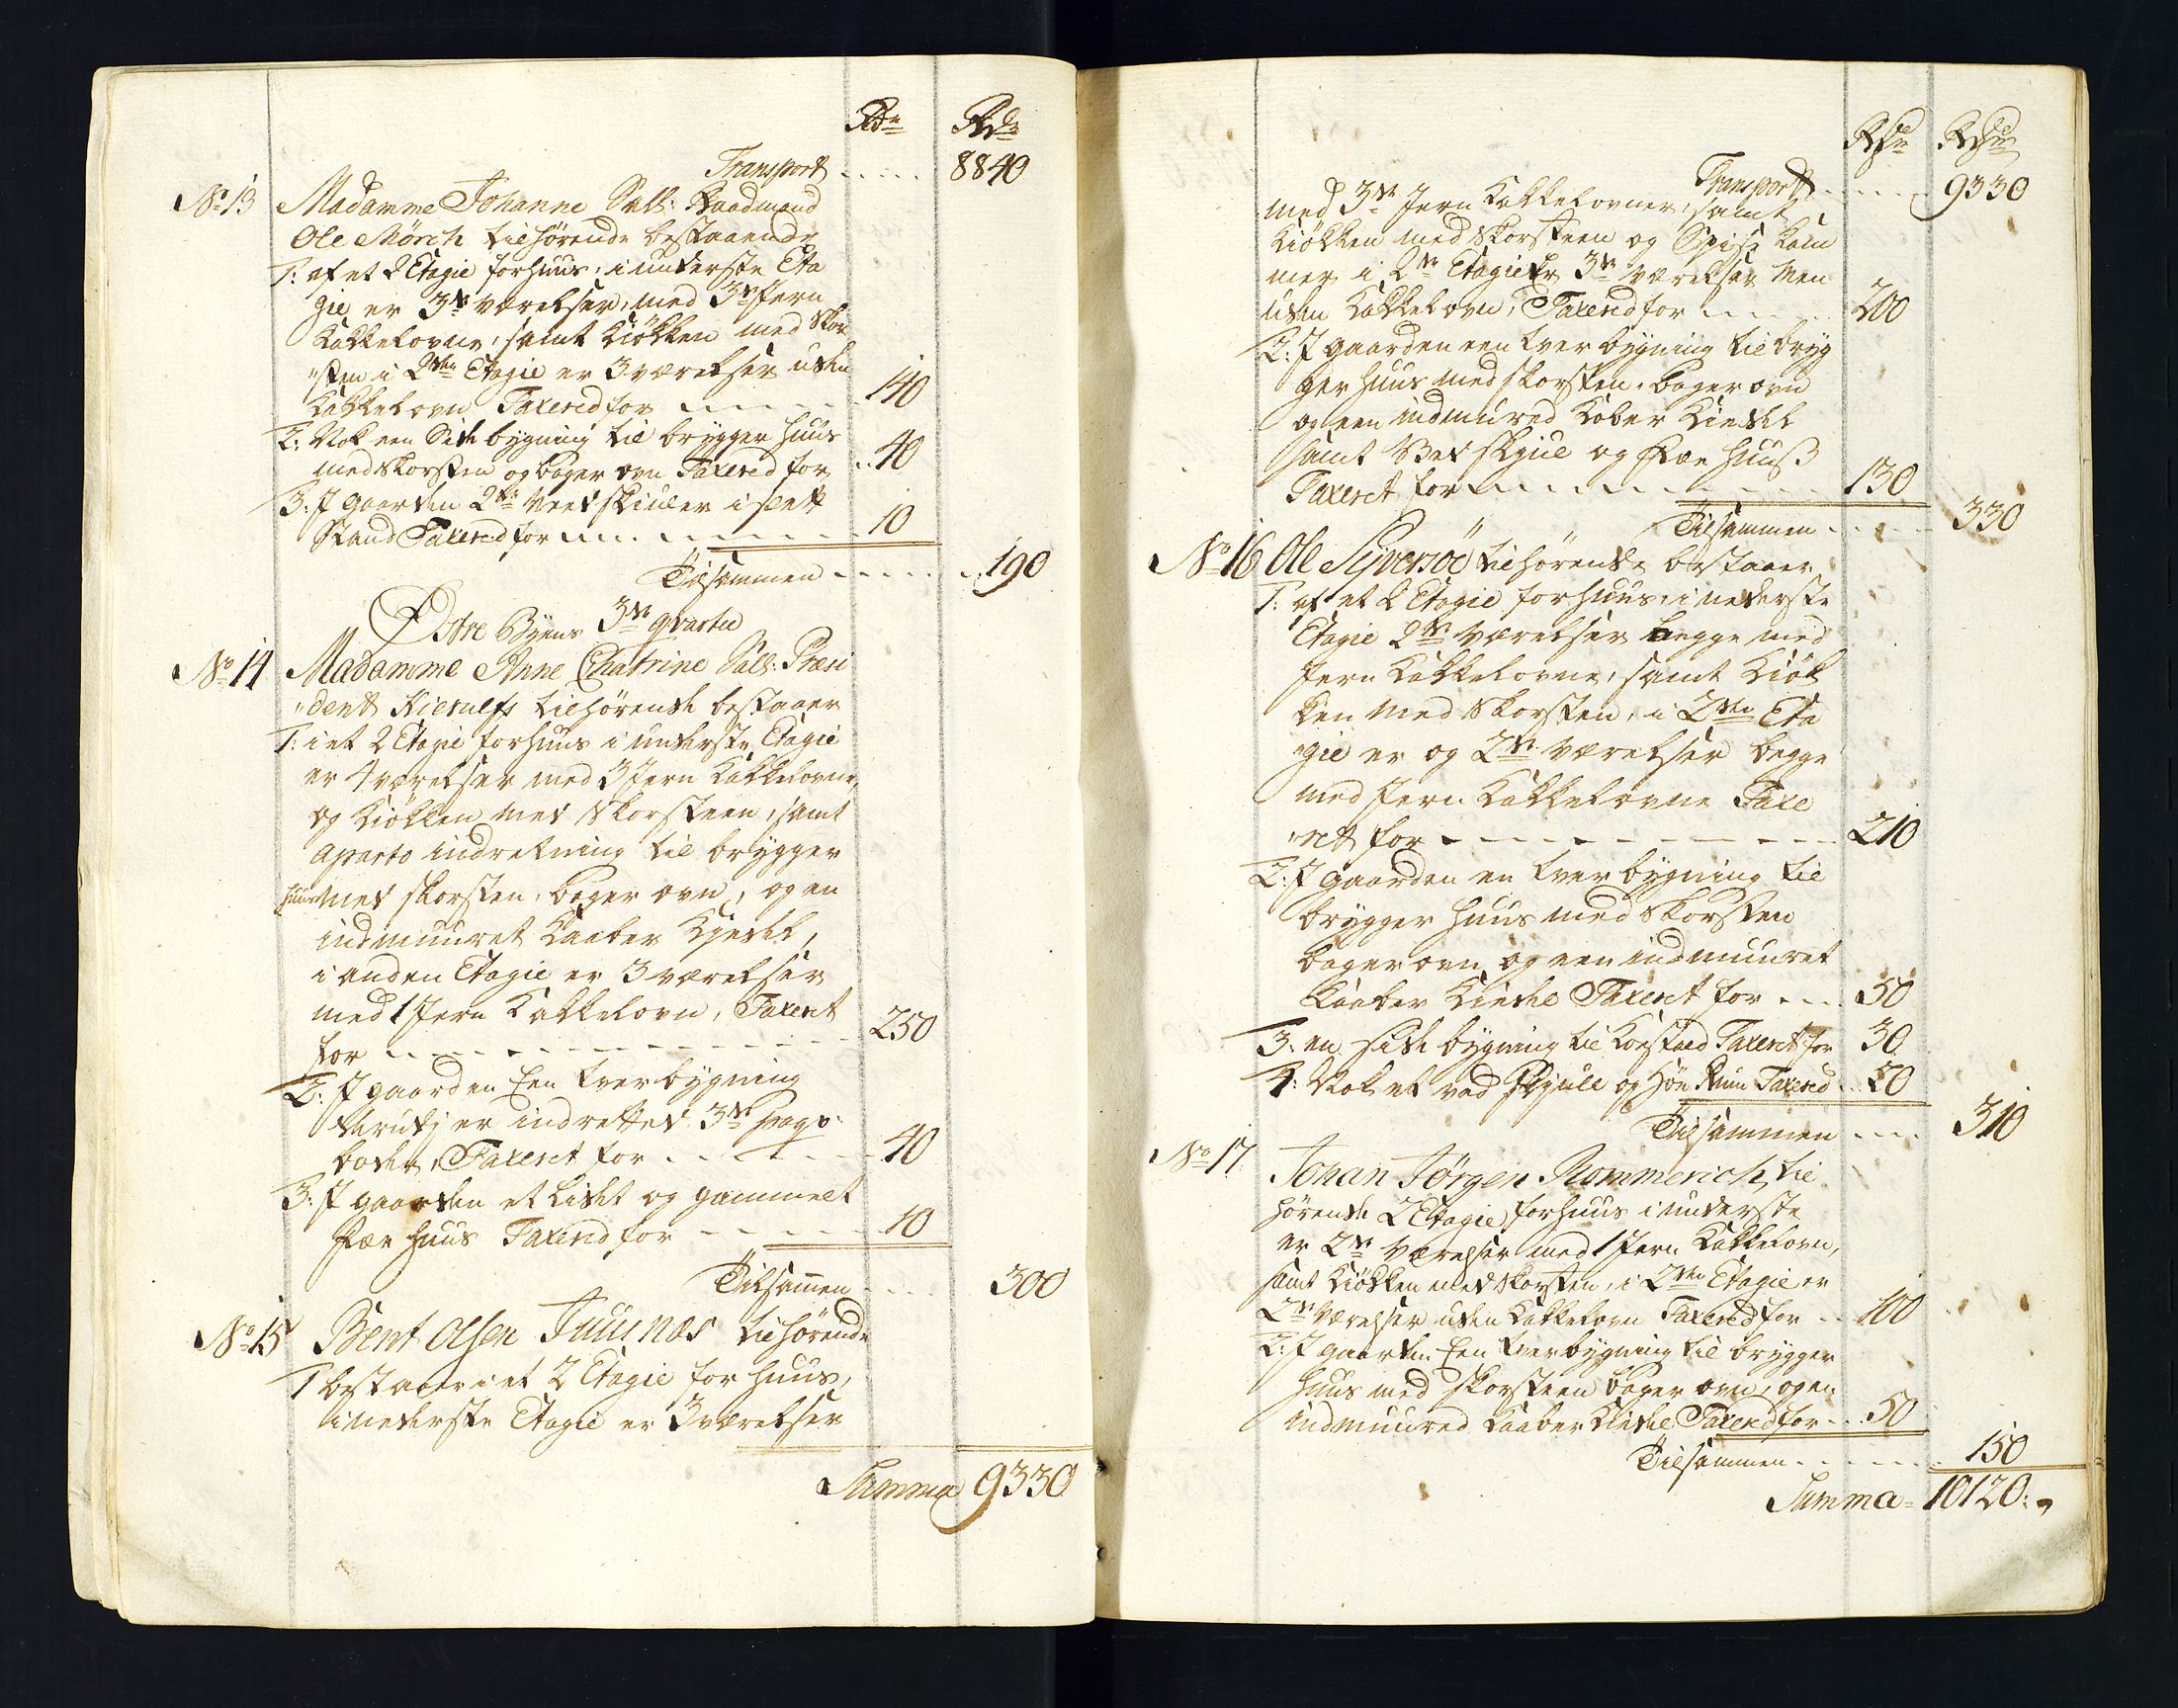 Rdr Rdr
Transport - - - - - 8840
No 13 Madamme Johanne Sall: Raadmand
Ole Mörch tilhörende bestaaende
1: af et 2 Etagie forhuus, i underste Eta
gie er 3de værelser, med 3de Jern
Kakkelovne, samt Kiökken med Skor
"sten i 2den Etagie er 3 værelser uden
Kakkelovn Taxered for - - - - - 140
2: Nok een Side bygning til brygger huus
med skorsten og bager ovn Taxered for - - 40
3: J gaarden 2de Veedskiuler i slett
Stand Taxered for - - - - - - 10
Tilsammen - - - - - 190
Østre Byens 3de qvarter
No 14 Madamme Anne Chatrine Sall: Præsi
"dent Kierulfs tilhörende bestaaer
1: i et 2 Etagie forhuus i underste Etagie
er 4 værelser med 3 Jern Kakkelovne,
og Kiökken med Skorsteen, samt
aparte indretning til brygger
huus med skorsten, bager ovn, og en
indmuuret Kaaber Kjedel,
i anden Etagie er 3 værelser
med 1 Jern Kakkelovn, Taxeret
for - - - - - - - - 250
2: J gaarden Een tver bygning
derudj er indrettet 3de
boder, Taxeret for - - - - 40
3: J gaarden et lidet og gammelt
Fæe huus Taxerid for - - - - - 10
Tilsamen - - - - 300
No 15 Bent Olsen Juunæs tilhörende
1 bestaaer i et 2 Etagie for huus,
i nederste Etagie er 3 værelser
Summa 9330
Rdr Rdr
Transport - - - - - 9330
med 3de Jern Kakkelovner, samt
Kiökken med Skorsteen og Spise Kam
mer i 2den Etagie Er 3de værelser Men
uden Kakkelovn, Taxerid for - - - - - 200
2: J gaarden een tver bygning til bryg
ger huus med skorsten, bager ovn
og een indmured Kober Kiedel
samt Ved skjul og Fæe huus
Taxeret for - - - - - - - - - - 130
Tilsammen - - - - 330
No 16 Ole Syversöe tilhörende bestaaer
1: af et 2 Etagie forhuus, i nederste
Etagie 2de Værelser begge med
Jern Kakkelovne, samt Kiök
ken med Skorsten, i 2den Eta
"gie er og 2de værelser begge
med Jern Kakkelovne Taxe
"rett for - - - - - - - - - 210
2: J gaarden en tver bygning til
brygger huus med Skorsten
bager ovn og een indmuuret
Kaaber Kiedel Taxeret for - - - 50
3: en side bygning til Koestald Taxeret for 30
4: Nok et vad Skjull og Hön Rum Taxered - - 20
Tilsammen - - - - 310
No 17. Johan Jörgen Rommerich, til
hörende 2 Etagie forhuus i underste
er 2de Værelser med 1 Jern Kakkelovn,
samt Kiökken med skorsten, i 2den Etagie er
2de Værelser uden Kakkelovn Taxered for - - 100
2: J gaarden Een tver bygning til brygger
huus med skorsteen bager ovn, og en
indmuured Kaaber Kiedel Taxered for - - 50
Tilsammen - - - - - - 150
Summa - 10120: